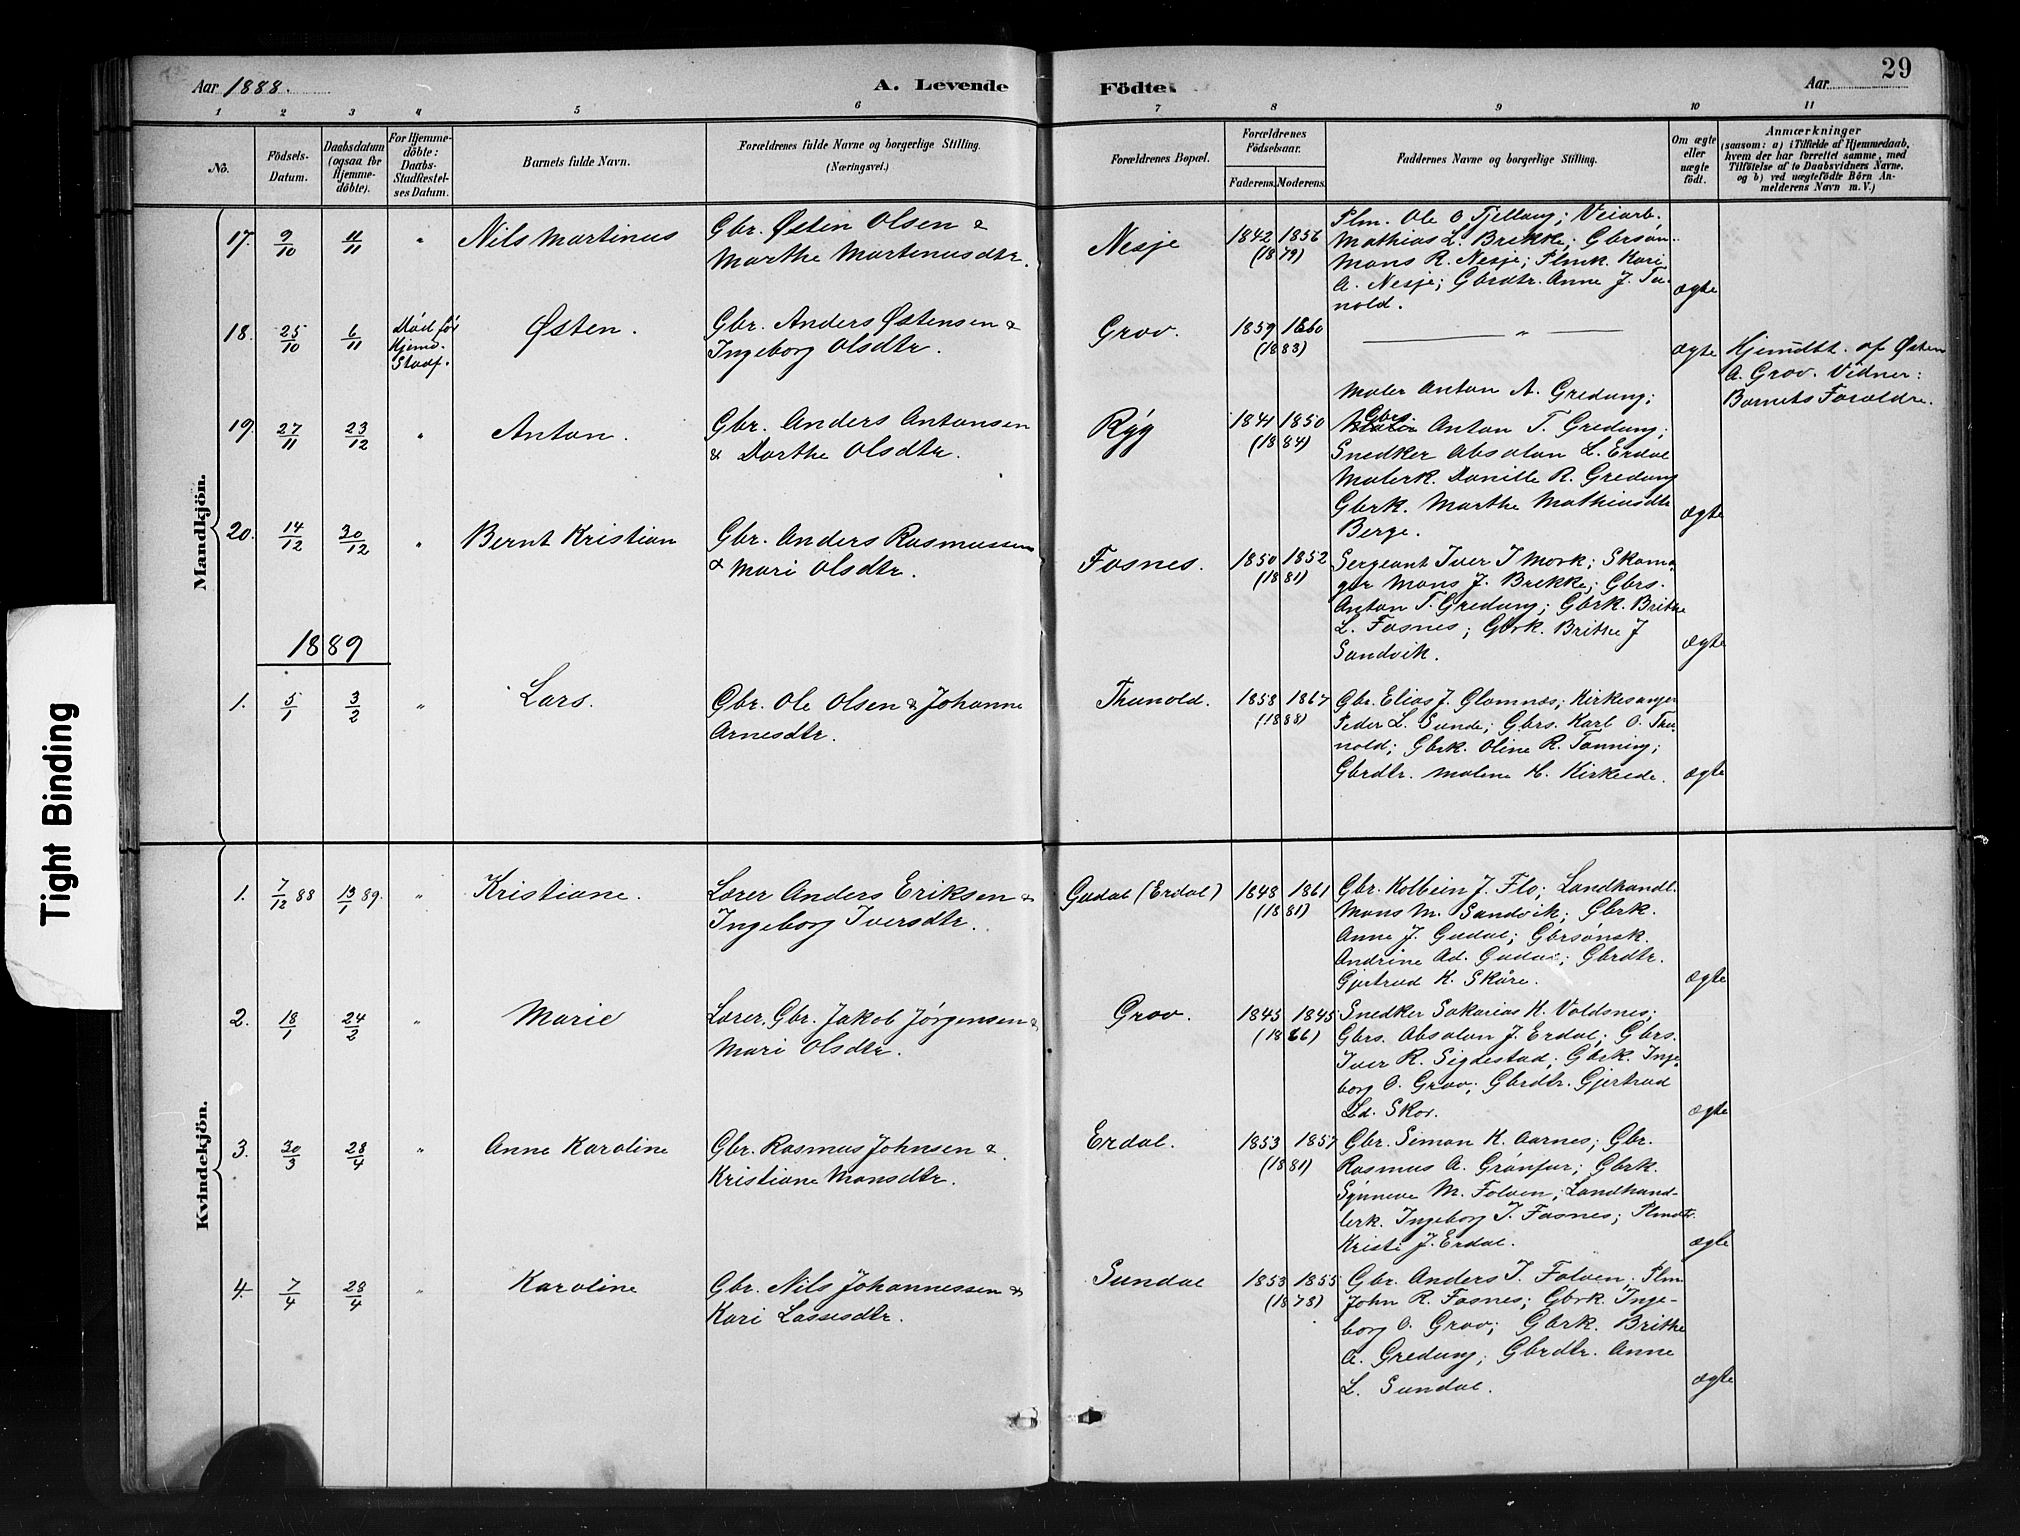 Aar 1888. A. Levende Födte. Aar 29
1 2 3 4 5 6 7 8 9 10 11
No.
Födsels-Datum.
Daabsdatum (ogsaa for Hjemme-döbte).
For Hjemme-döbte: Daabs-Stadfæstel-ses Datum.
Barnets fulde Navn.
Forældrenes fulde Navne og borgerlige Stilling. (Næringsvei.)
Forældrenes Bopæl.
Forældrenes Födselsaar. Faderens. Moderens.
Faddernes Navne og borgerlige Stilling.
Om ægte eller uægte födt.
Anmærkninger (saasom: a) i Tilfælde af Hjemmedaab, hvem der har forrettet samme, med Tilföielse af to Daabsvidners Navne, og b) ved uægtefödte Börn An-melderens Navn m. V.)
Mandkjön.
17. 9/10 11/11 " Nils Martinus
Gbr. Østen Olsen &
Marthe Martenusdtr.
Nesje 1842 1856
(1879)
Plm. Ole O Tjellaug; Veiarb.
Mathias L. Brekke; Gbrsøn
Mons R. Nesje; Plmk. Kari
A. Nesje; Gbrdtr. Anne J. Tu-
nold.
ægte
18. 25/10 6/11 Død før
Hjemd.
Stadf.
Østen.
Gbr. Anders Østensen &
Ingeborg Olsdtr.
Grov. 1859 1860
(1883)
"
ægte
Hjemdbt. af Østen
A. Grov. Vidner:
Barnets Forældre.
19. 27/11 23/12 " Anton.
Gbr. Anders Antonsen
& Dorthe Olsdtr.
Ryg 1841 1850
(1884)
Maler Anton A. Gredung;
Gbrs. Anton T. Gredung;
Snedker Absalon L. Erdal
Malerk. Danille R. Gredung
Gbrk. Marthe Mathiasdtr
Berge.
ægte
20. 14/12 30/12 " Bernt Kristian
Gbr. Anders Rasmussen
& Mari Olsdtr.
Fosnes. 1850 1852
(1881)
Sergeant Iver I Mork; Skoma-
ger Mons J. Brekke; Gbrs.
Anton T. Gredung; Gbrk. Brithe
L. Fosnes; Gbrk. Brithe J
Sandvik.
ægte
1889
1. 5/1 3/2 " Lars.
Gbr. Ole Olsen & Johanne
Arnesdtr.
Thunold. 1858 1867
(1888)
Gbr. Elias J. Glomnæs; Kirkesanger
Peder L. Sunde; Gbrs. Karl O. Thu-
nold; Gbrk. Oline R. Tonning;
Gbrdtr. Malene H. Kirkeide.
ægte
Kvindekjön.
1. 7/12 88 13/1 89. " Kristiane.
Lærer Anders Eriksen &
Ingeborg Iversdtr.
Gudal (Erdal) 1848 1861
(1881)
Gbr. Kolbein J. Flo; Landhandl.
Mons M. Sandvik; Gbrk.
Anne J. Gudal; Gbrsønsk.
Andrine Ad. Gudal; Gbrdtr.
Gjertrud K. Skåre.
ægte
2. 18/1 24/2 " Marie
Lærer. Gbr. Jakob Jørgensen &
Mari Olsdtr.
Grov. 1845 1845
(1866)
Snedker Sakarias K. Voldsnes;
Gbrs. Absalon J. Erdal; Gbrs.
Iver R. Sigdestad; Gbrk. Inge-
borg O. Grov; Gbrdtr. Gjertrud
Ld. Skor.
ægte
3. 30/3 28/4 " Anne Karoline
Gbr. Rasmus Johnsen &
Kristiane Monsdtr.
Erdal. 1853 1857
(1881)
Gbr. Simon K. Aarnes; Gbr.
Rasmus A. Grønfur; Gbrk.
Synneve M. Folven; Landhand-
lerk. Ingeborg I. Fosnes; Plmdtr.
Kristi J. Erdal.
ægte
4. 7/4 28/4 " Karoline
Gbr. Nils Johannessen &
Kari Lassesdtr.
Sundal 1853 1855
(1878)
Gbr. Anders I. Folven; Plm
John R. Fosnes; Gbrk. Inge-
borg O. Grov; Gbrk. Brithe
A. Gredung; Gbrdtr. Anne
L. Sundal.
ægte
Tight Binding